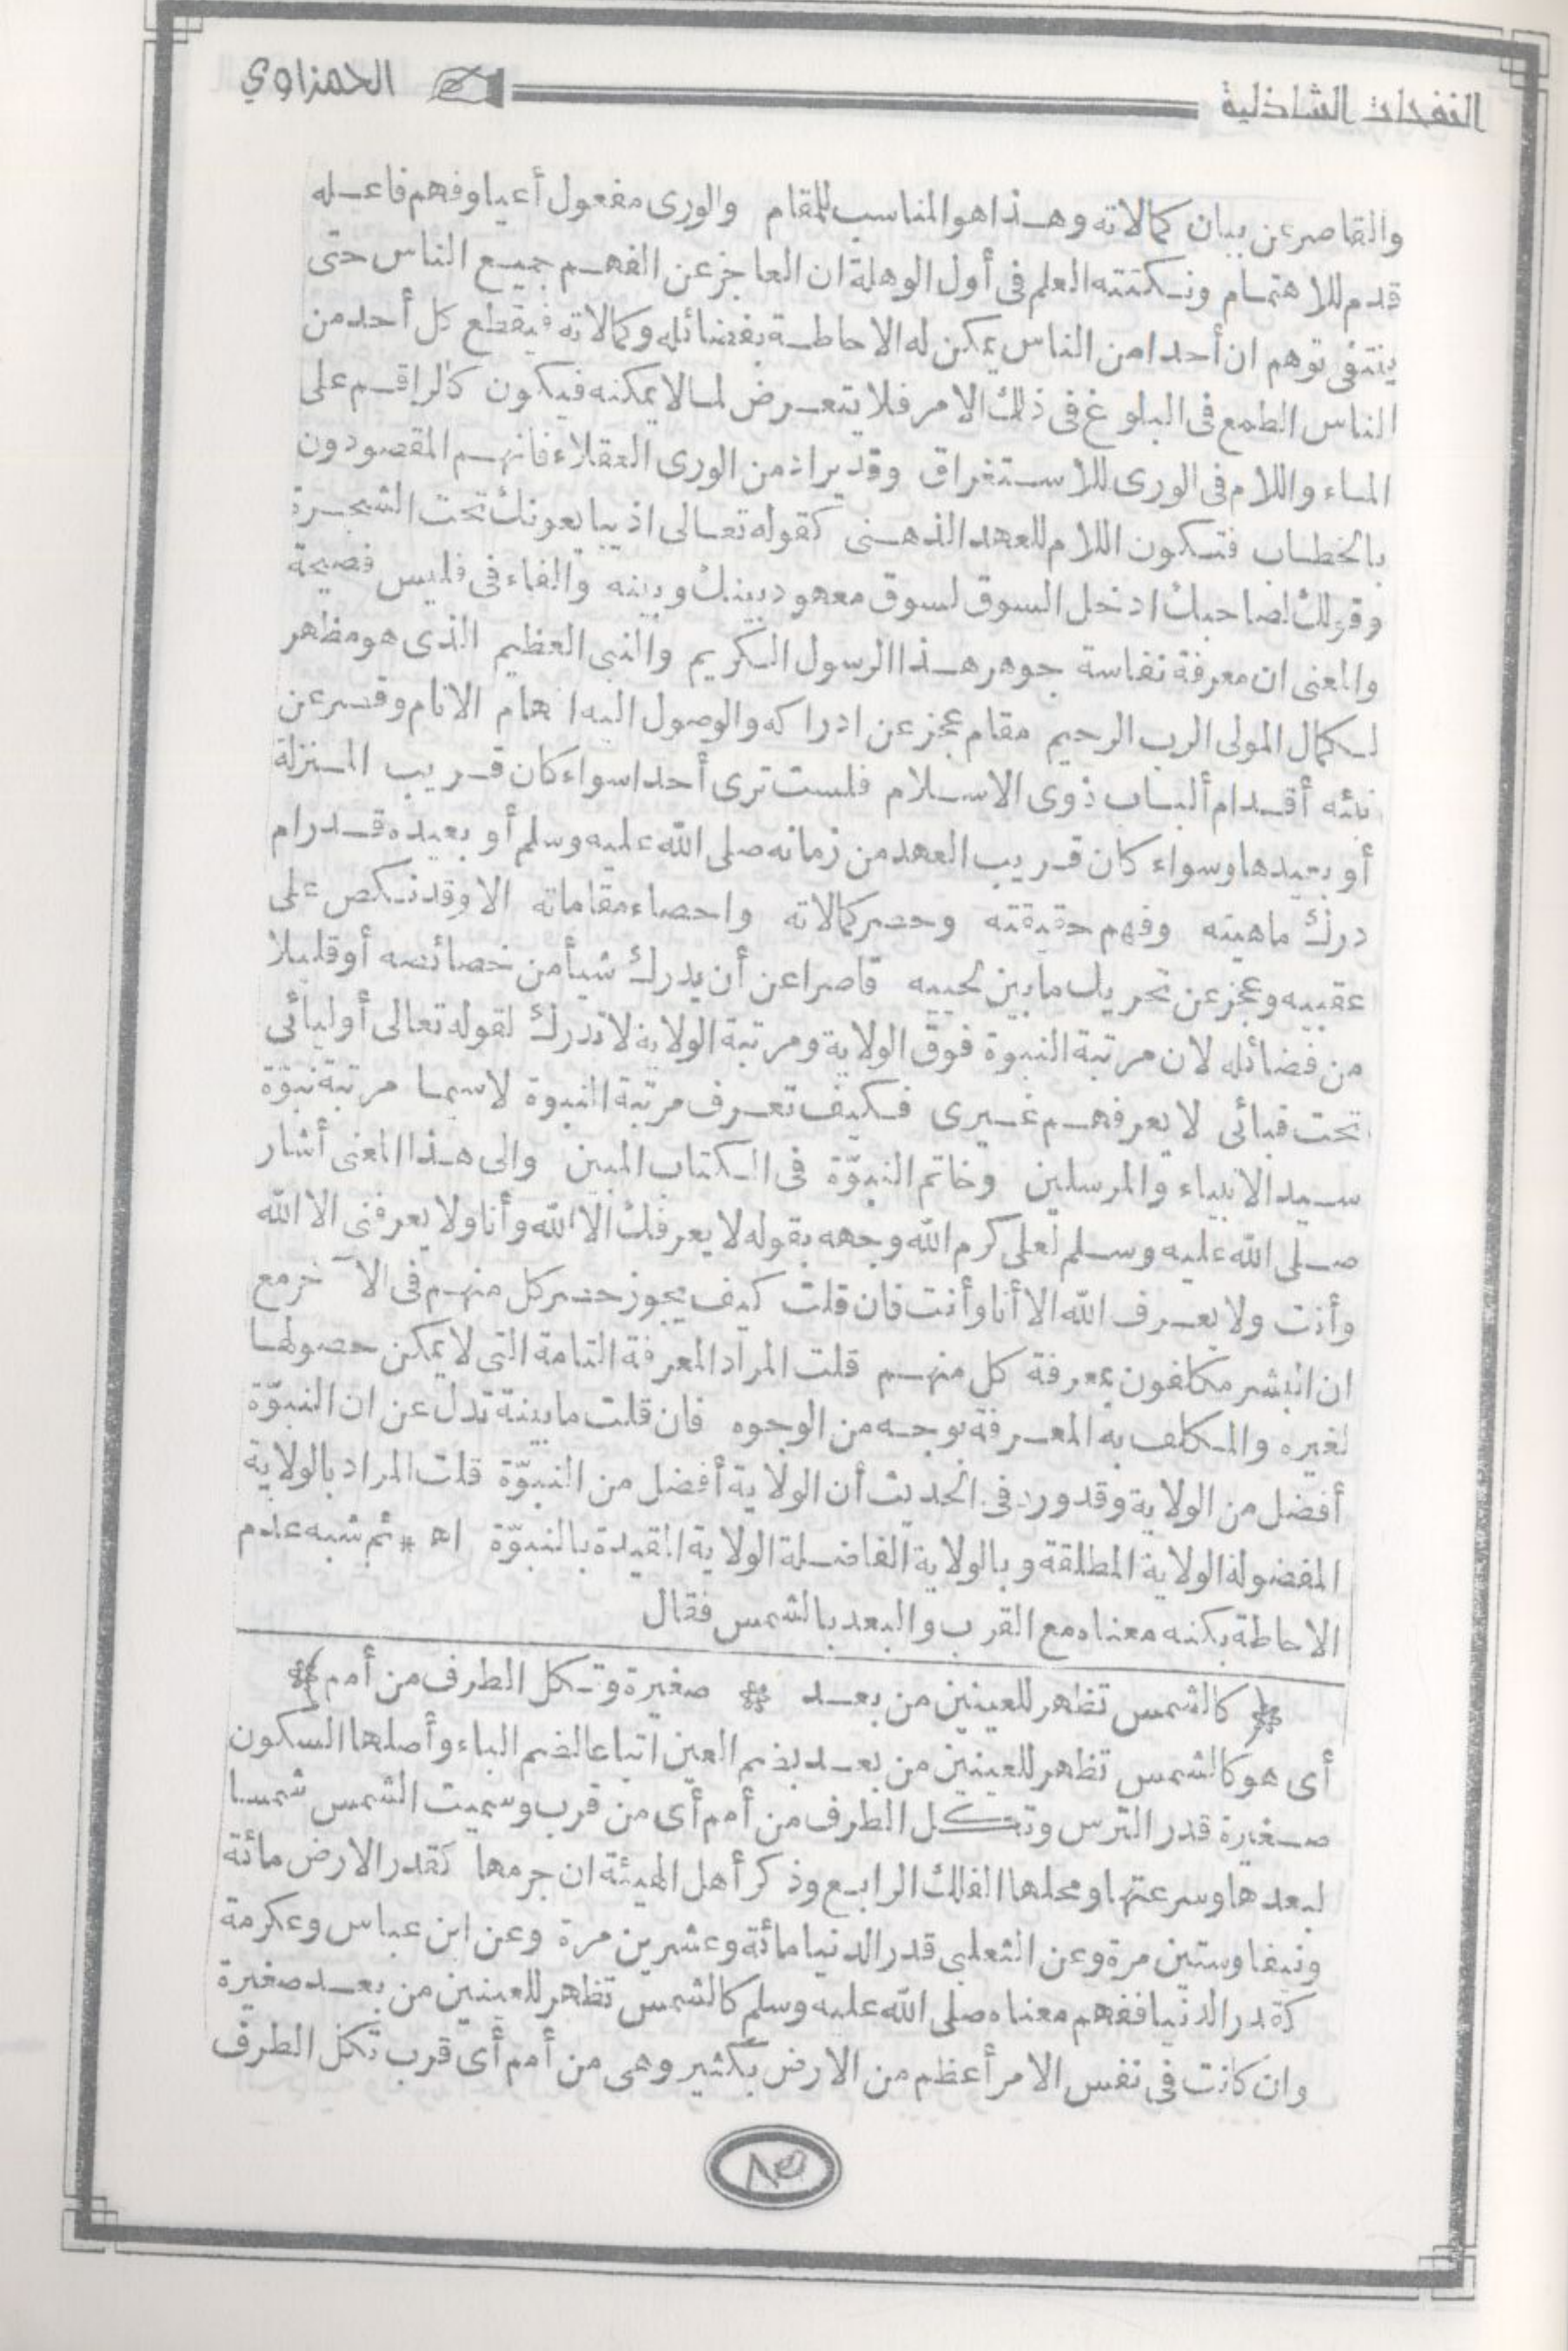 النفحات الشاذلية
الحمزاوي
والقاصر عن بيان كمالاته وهذا هو المناسب للمقام والورى مفعول أعيا وفهم فاعله
قدم للاهتمام ونكتته العلم فى أول الوهلة ان العاجز عن الفهم جميع الناس حتى
ينتفى توهم ان أحدا من الناس يمكن له الاحاطة بفضائله وكمالاته فيقطع كل أحد من
الناس الطمع فى البلوغ فى ذلك الامر فلا يتعرض لما لا يمكنه فيكون كالراقم على
الماء واللام فى الورى للاستغراق وقد يراد من الورى العقلاء فانهم المقصودون
بالخطاب فتكون اللام للعهد الذهنى كقوله تعالى اذ يبايعونك تحت الشجرة
وقولك لصاحبك ادخل السوق لسوق معهود بينك وبينه والفاء فى فليس فصيحة
والمعنى ان معرفة نفاسة جوهر هذا الرسول الكريم والنبى العظيم الذى هو مظهر
لكمال المولى الرب الرحيم مقام عجز عن ادراكه والوصول اليه افهام الانام وقصر عن
نيله أقدام ألباب ذوى الاسلام فلست ترى أحدا سواء كان قريب المنزلة
أو بعيدها وسواء كان قريب العهد من زمانه صلى الله عليه وسلم أو بعيده قد رام
درك ماهيته وفهم حقيقته وحصر كمالاته واحصاء مقاماته الا وقد نكص على
عقبيه وعجز عن تحريك ما بين لحييه قاصرا عن أن يدرك شيأ من خصائصه أو قليلا
من فضائله لان مرتبة النبوة فوق الولاية ومرتبة الولاية لا تدرك لقوله تعالى أوليائى
تحت قبائى لا يعرفهم غيرى فكيف تعرف مرتبة النبوة لاسيما مرتبة نبوّة
سيد الانبياء والمرسلين وخاتم النبوّة فى الكتاب المبين والى هذا المعنى أشار
صلى الله عليه وسلم لعلى كرم الله وجهه بقوله لا يعرفك الا الله وأنا ولا يعرفنى الا الله
وأنت ولا يعرف الله الا أنا وأنت فان قلت كيف يجوز حصر كل منهم فى الآخر مع
ان البشر مكلفون بمعرفة كل منهم قلت المراد المعرفة التامة التى لا يمكن حصولها
لغيره والمكلف به المعرفة بوجه من الوجوه فان قلت ما بينة تدل عن ان النبوّة
أفضل من الولاية وقد ورد فى الحديث أن الولاية أفضل من النبوّة قلت المراد بالولاية
المفضولة الولاية المطلقة وبالولاية الفاضلة الولاية المقيدة بالنبوّة اه * ثم شبه عدم
الاحاطة بكنه معناه مع القرب والبعد بالشمس فقال
* كالشمس تظهر للعينين من بعد * صغيرة وتكل الطرف من أمم *
أى هو كالشمس تظهر للعينين من بعد بضم العين اتباعا لضم الباء وأصلها السكون
صغيرة قدر الترس وتكل الطرف من أمم أى من قرب وسميت الشمس شمسا
لبعدها وسرعتها ومحلها الفلك الرابع وذكر أهل الهيئة ان جرمها كقدر الارض مائة
ونيفا وستين مرة وعن الثعلبى قدر الدنيا مائة وعشرين مرة وعن ابن عباس وعكرمة
كقدر الدنيا ففهم معناه صلى الله عليه وسلم كالشمس تظهر للعينين من بعد صغيرة
وان كانت فى نفس الامر أعظم من الارض بكثير وهى من أمم أى قرب تكل الطرف